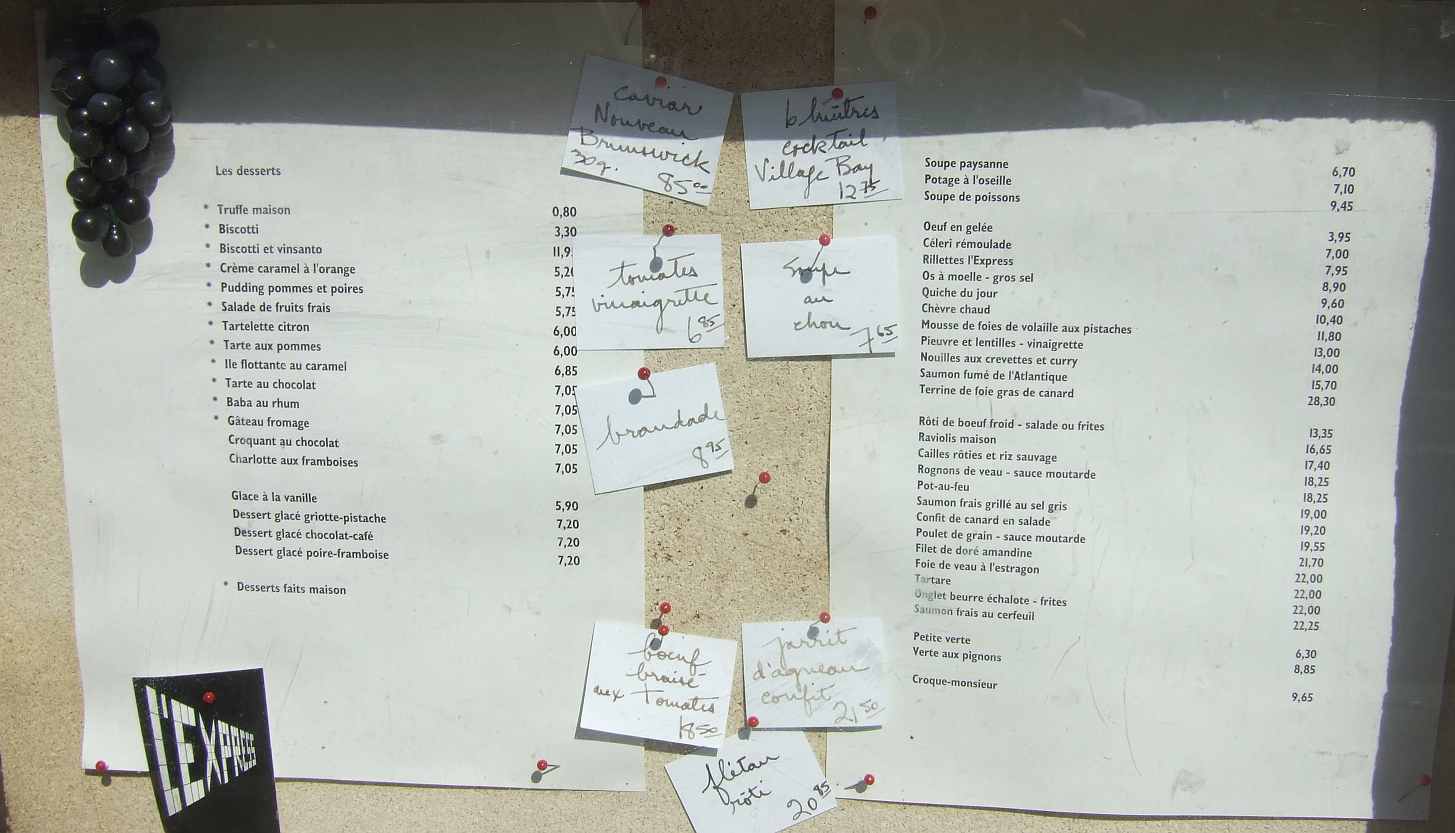 Les desserts
* Truffe maison 0,80
* Biscotti 3,30
* Biscotti et vinsanto 11,9
* Crème caramel à l'orange 5,20
* Pudding pommes et poires 5,75
* Salade de fruits frais 5,75
* Tartelette citron 6,00
* Tarte aux pommes 6,00
* Ile flottante au caramel 6,85
* Tarte au chocolat 7,05
* Baba au rhum 7,05
* Gâteau fromage 7,05
Croquant au chocolat 7,05
Charlotte aux framboises 7,05
Glace à la vanille 5,90
Dessert glacé griotte-pistache 7,20
Dessert glacé chocolat-café 7,20
Dessert glacé poire-framboise 7,20
* Desserts faits maison
L'EXPRESS
caviar
Nouveau
Brunswick
30g.
85 00
6 huîtres
cocktail
Village Bay
12 75
tomates
vinaigrette
6 85
soupe
au
chou
7 65
brandade
8 95
boeuf
braisé
aux Tomates
18 50
jarret
d'agneau
confit
21 50
flétan
rôti
20 85
Soupe paysanne 6,70
Potage à l'oseille 7,10
Soupe de poissons 9,45
Oeuf en gelée 3,95
Céleri rémoulade 7,00
Rillettes l'Express 7,95
Os à moelle - gros sel 8,90
Quiche du jour 9,60
Chèvre chaud 10,40
Mousse de foies de volaille aux pistaches 11,80
Pieuvre et lentilles - vinaigrette 13,00
Nouilles aux crevettes et curry 14,00
Saumon fumé de l'Atlantique 15,70
Terrine de foie gras de canard 28,30
Rôti de boeuf froid - salade ou frites 13,35
Raviolis maison 16,65
Cailles rôties et riz sauvage 17,40
Rognons de veau - sauce moutarde 18,25
Pot-au-feu 18,25
Saumon frais grillé au sel gris 19,00
Confit de canard en salade 19,20
Poulet de grain - sauce moutarde 19,55
Filet de doré amandine 21,70
Foie de veau à l'estragon 22,00
Tartare 22,00
Onglet beurre échalote - frites 22,00
Saumon frais au cerfeuil 22,25
Petite verte 6,30
Verte aux pignons 8,85
Croque-monsieur 9,65